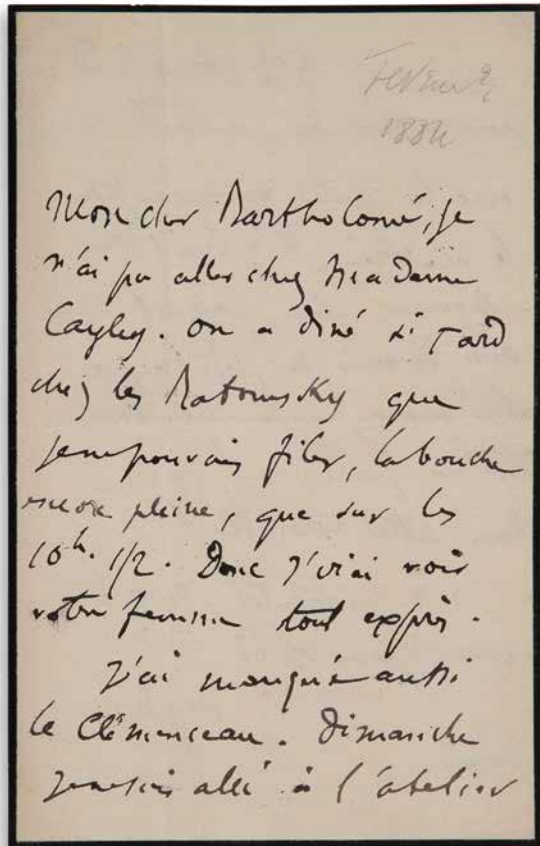 Février
1884
Mon cher Bartholomé, je
n'ai pu aller chez Madame
Cayley. on a diné si tard
chez les Ratomsky que
je ne pouvais filer, la bouche
encore pleine, que sur les
10h. 1/2. Donc j'irai voir
votre femme tout exprès.
J'ai manqué aussi
le Clémenceau. Dimanche
je me suis allé à l'atelier